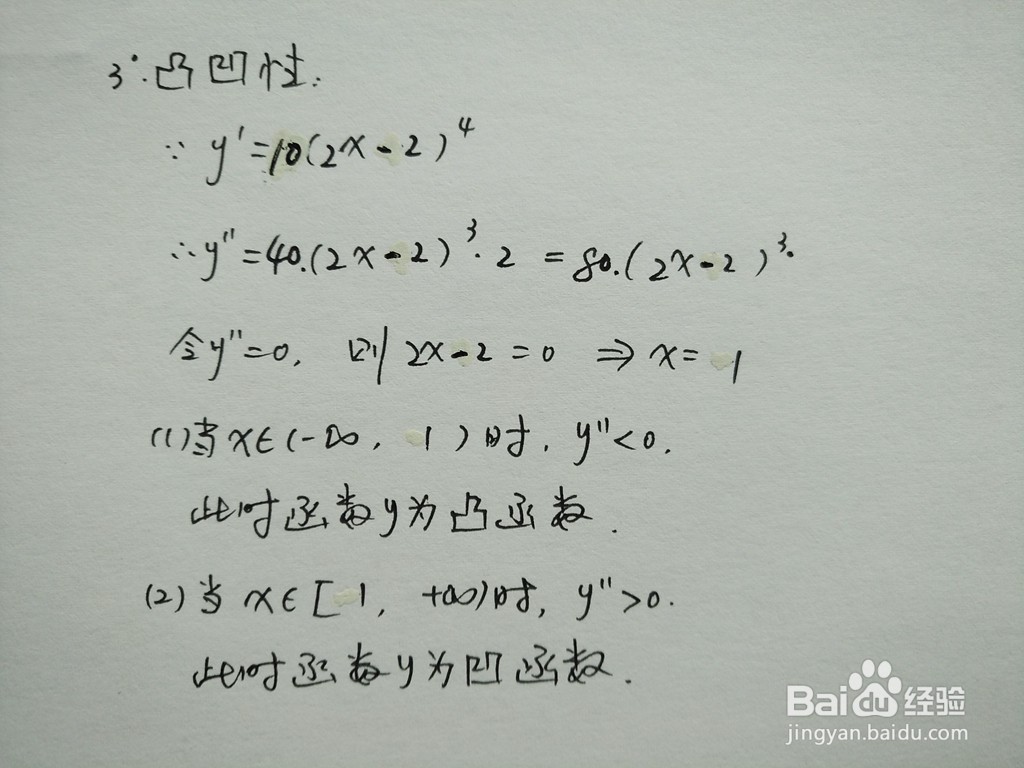 3°.凸凹性:
∵ y'=10(2x-2)^4
∴y"=40.(2x-2)^3·2 =80.(2x-2)^3.
令y"=0, 则 2x-2=0 ⇒ x= 1
(1)当x∈(-∞, 1)时, y"<0,
此时函数y为凸函数.
(2)当 x∈[1, +∞)时, y">0.
此时函数y为凹函数.
Baidu经验
jingyan.baidu.com